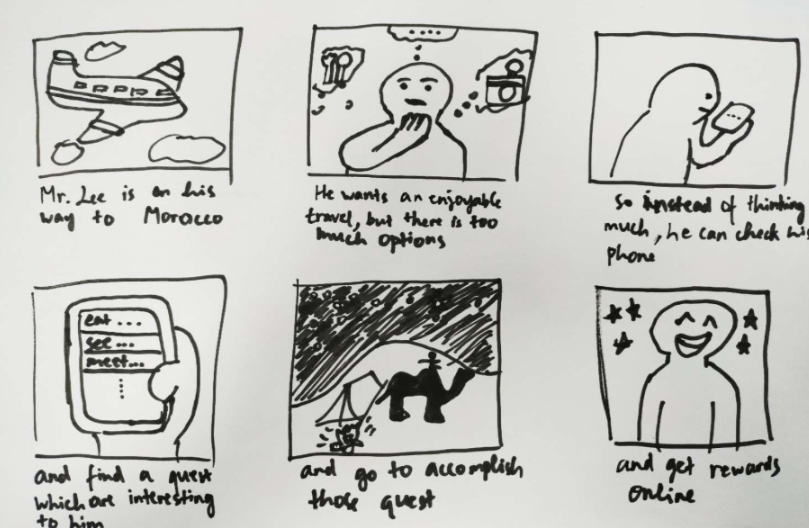 Mr. Lee is on his
way to Morocco
He wants an enjoyable
travel, but there is too
much options
so instead of thinking
much, he can check his
phone
eat ...
see ...
meet...
and find a quest
which are interesting
to him
and go to accomplish
those quest
and get rewards
online